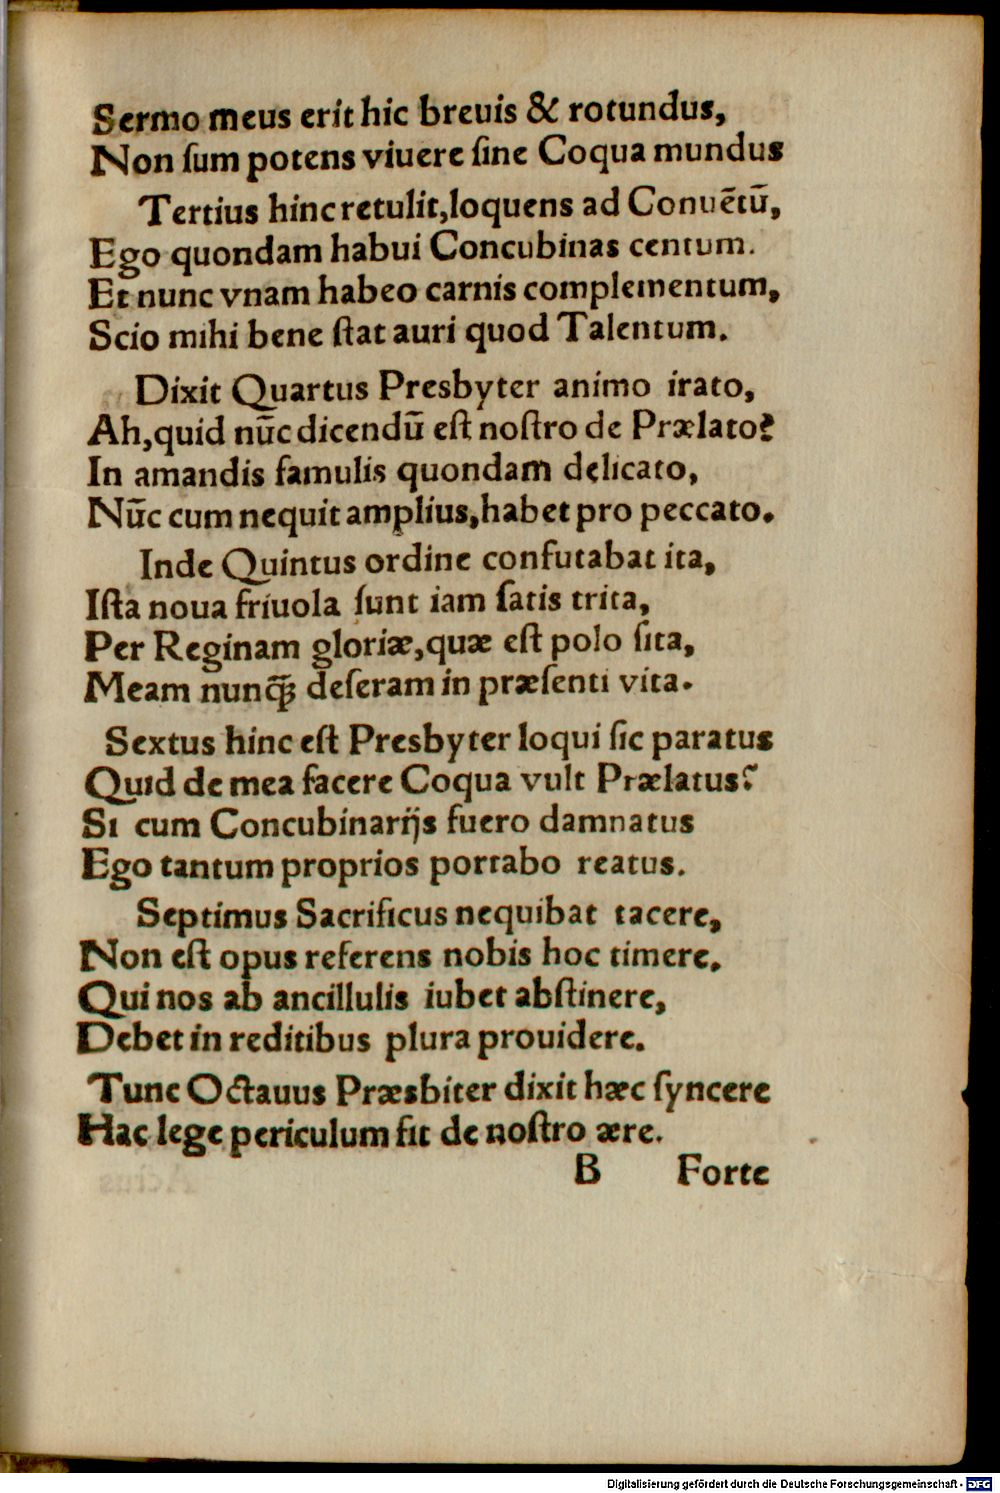 Sermo meus erit hic breuis & rotundus,
Non ſum potens viuere ſine Coqua mundus
Tertius hinc retulit, loquens ad Conuētū,
Ego quondam habui Concubinas centum.
Et nunc vnam habeo carnis complementum,
Scio mihi bene ſtat auri quod Talentum.
Dixit Quartus Presbyter animo irato,
Ah, quid nūc dicendū eſt noſtro de Prælato?
In amandis famulis quondam delicato,
Nūc cum nequit amplius, habet pro peccato.
Inde Quintus ordine confutabat ita,
Iſta noua friuola ſunt iam ſatis trita,
Per Reginam gloriæ, quæ eſt polo ſita,
Meam nunq̃ꝫ deſeram in præſenti vita.
Sextus hinc eſt Presbyter loqui ſic paratus
Quid de mea facere Coqua vult Prælatus?
Si cum Concubinarijs fuero damnatus
Ego tantum proprios portabo reatus.
Septimus Sacrificus nequibat tacere,
Non eſt opus referens nobis hoc timere.
Qui nos ab ancillulis iubet abſtinere,
Debet in reditibus plura prouidere.
Tunc Octauus Præsbiter dixit hæc ſyncere
Hac lege periculum fit de noſtro ære.
B Forte
Digitalisierung gefördert durch die Deutsche Forschungsgemeinschaft - DFG